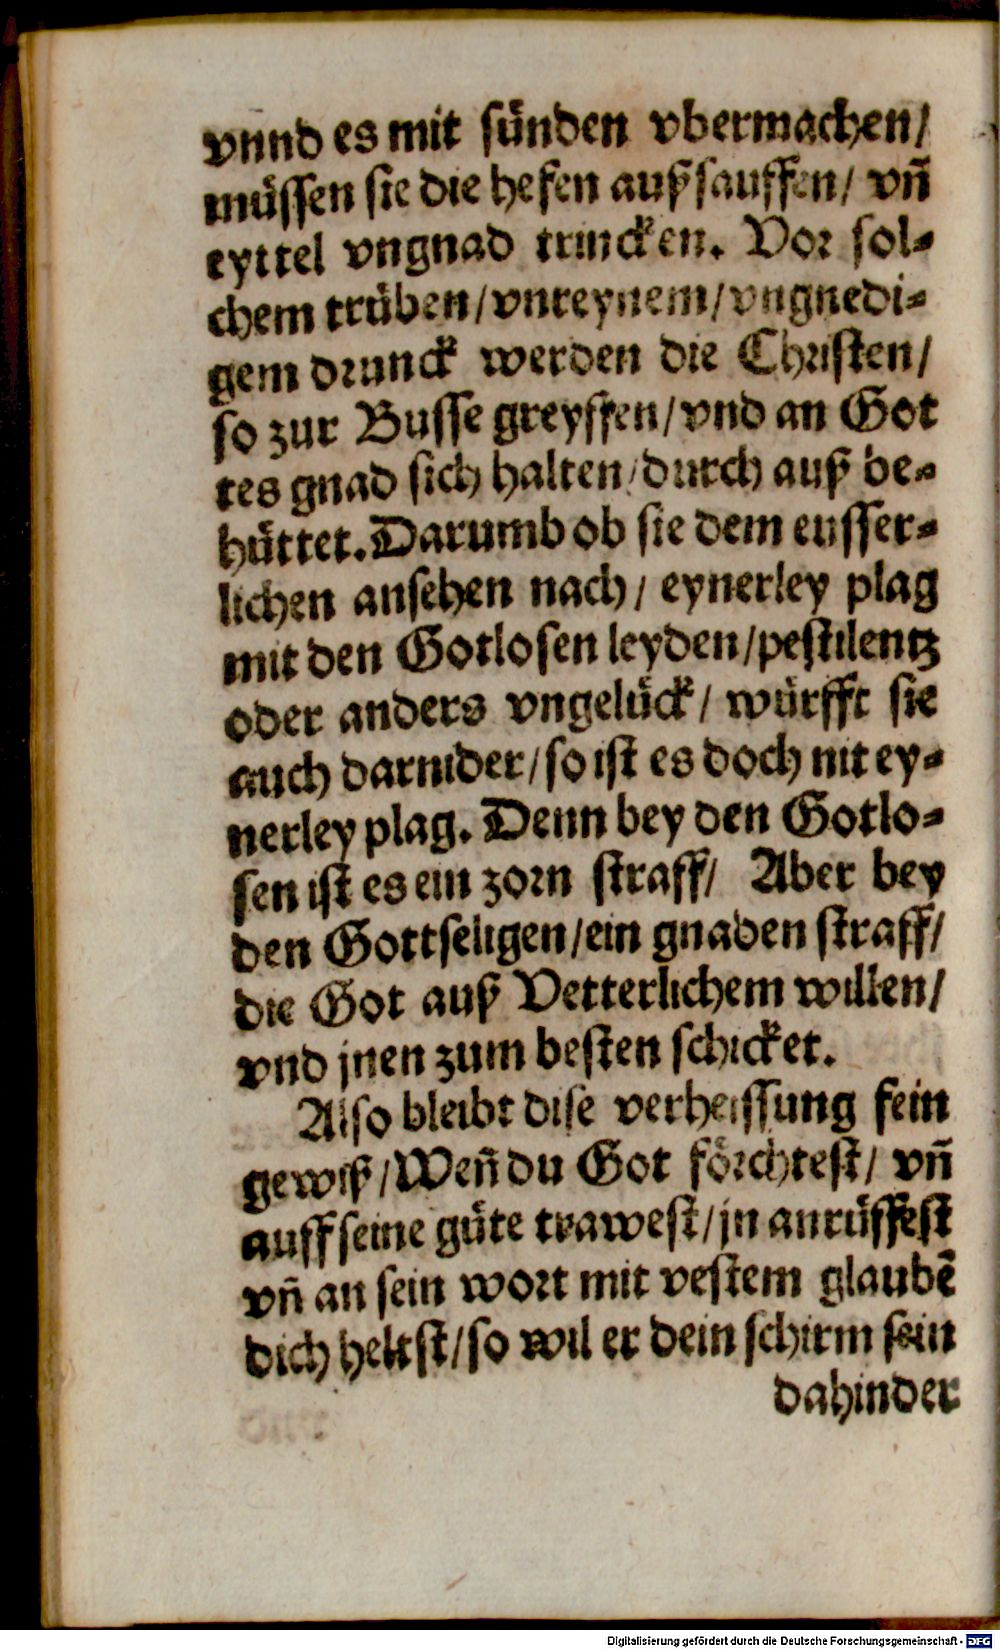 vnnd es mit sünden vbermachen/
müssen sie die hefen außsauffen/ vñ
eyttel vngnad trincken. Vor sol-
chem trüben/vnreynem/vngnedi-
gem drunck werden die Christen/
so zur Busse greyffen/vnd an Got
tes gnad sich halten/durch auß be-
hüttet. Darumb ob sie dem eusser-
lichen ansehen nach/ eynerley plag
mit den Gotlosen leyden/pestilentz
oder anders vngelück/ würfft sie
auch darnider/so ist es doch nit ey-
nerley plag. Denn bey den Gotlo-
sen ist es ein zorn straff/ Aber bey
den Gottseligen/ein gnaden straff/
die Got auß Vetterlichem willen/
vnd jnen zum besten schicket.
Also bleibt dise verheissung fein
gewiß/Weñ du Got förchtest/ vñ
auff seine güte trawest/jn anrüffest
vñ an sein wort mit vestem glaubē
dich heltst/so wil er dein schirm sein
dahinder
Digitalisierung gefördert durch die Deutsche Forschungsgemeinschaft - DFG